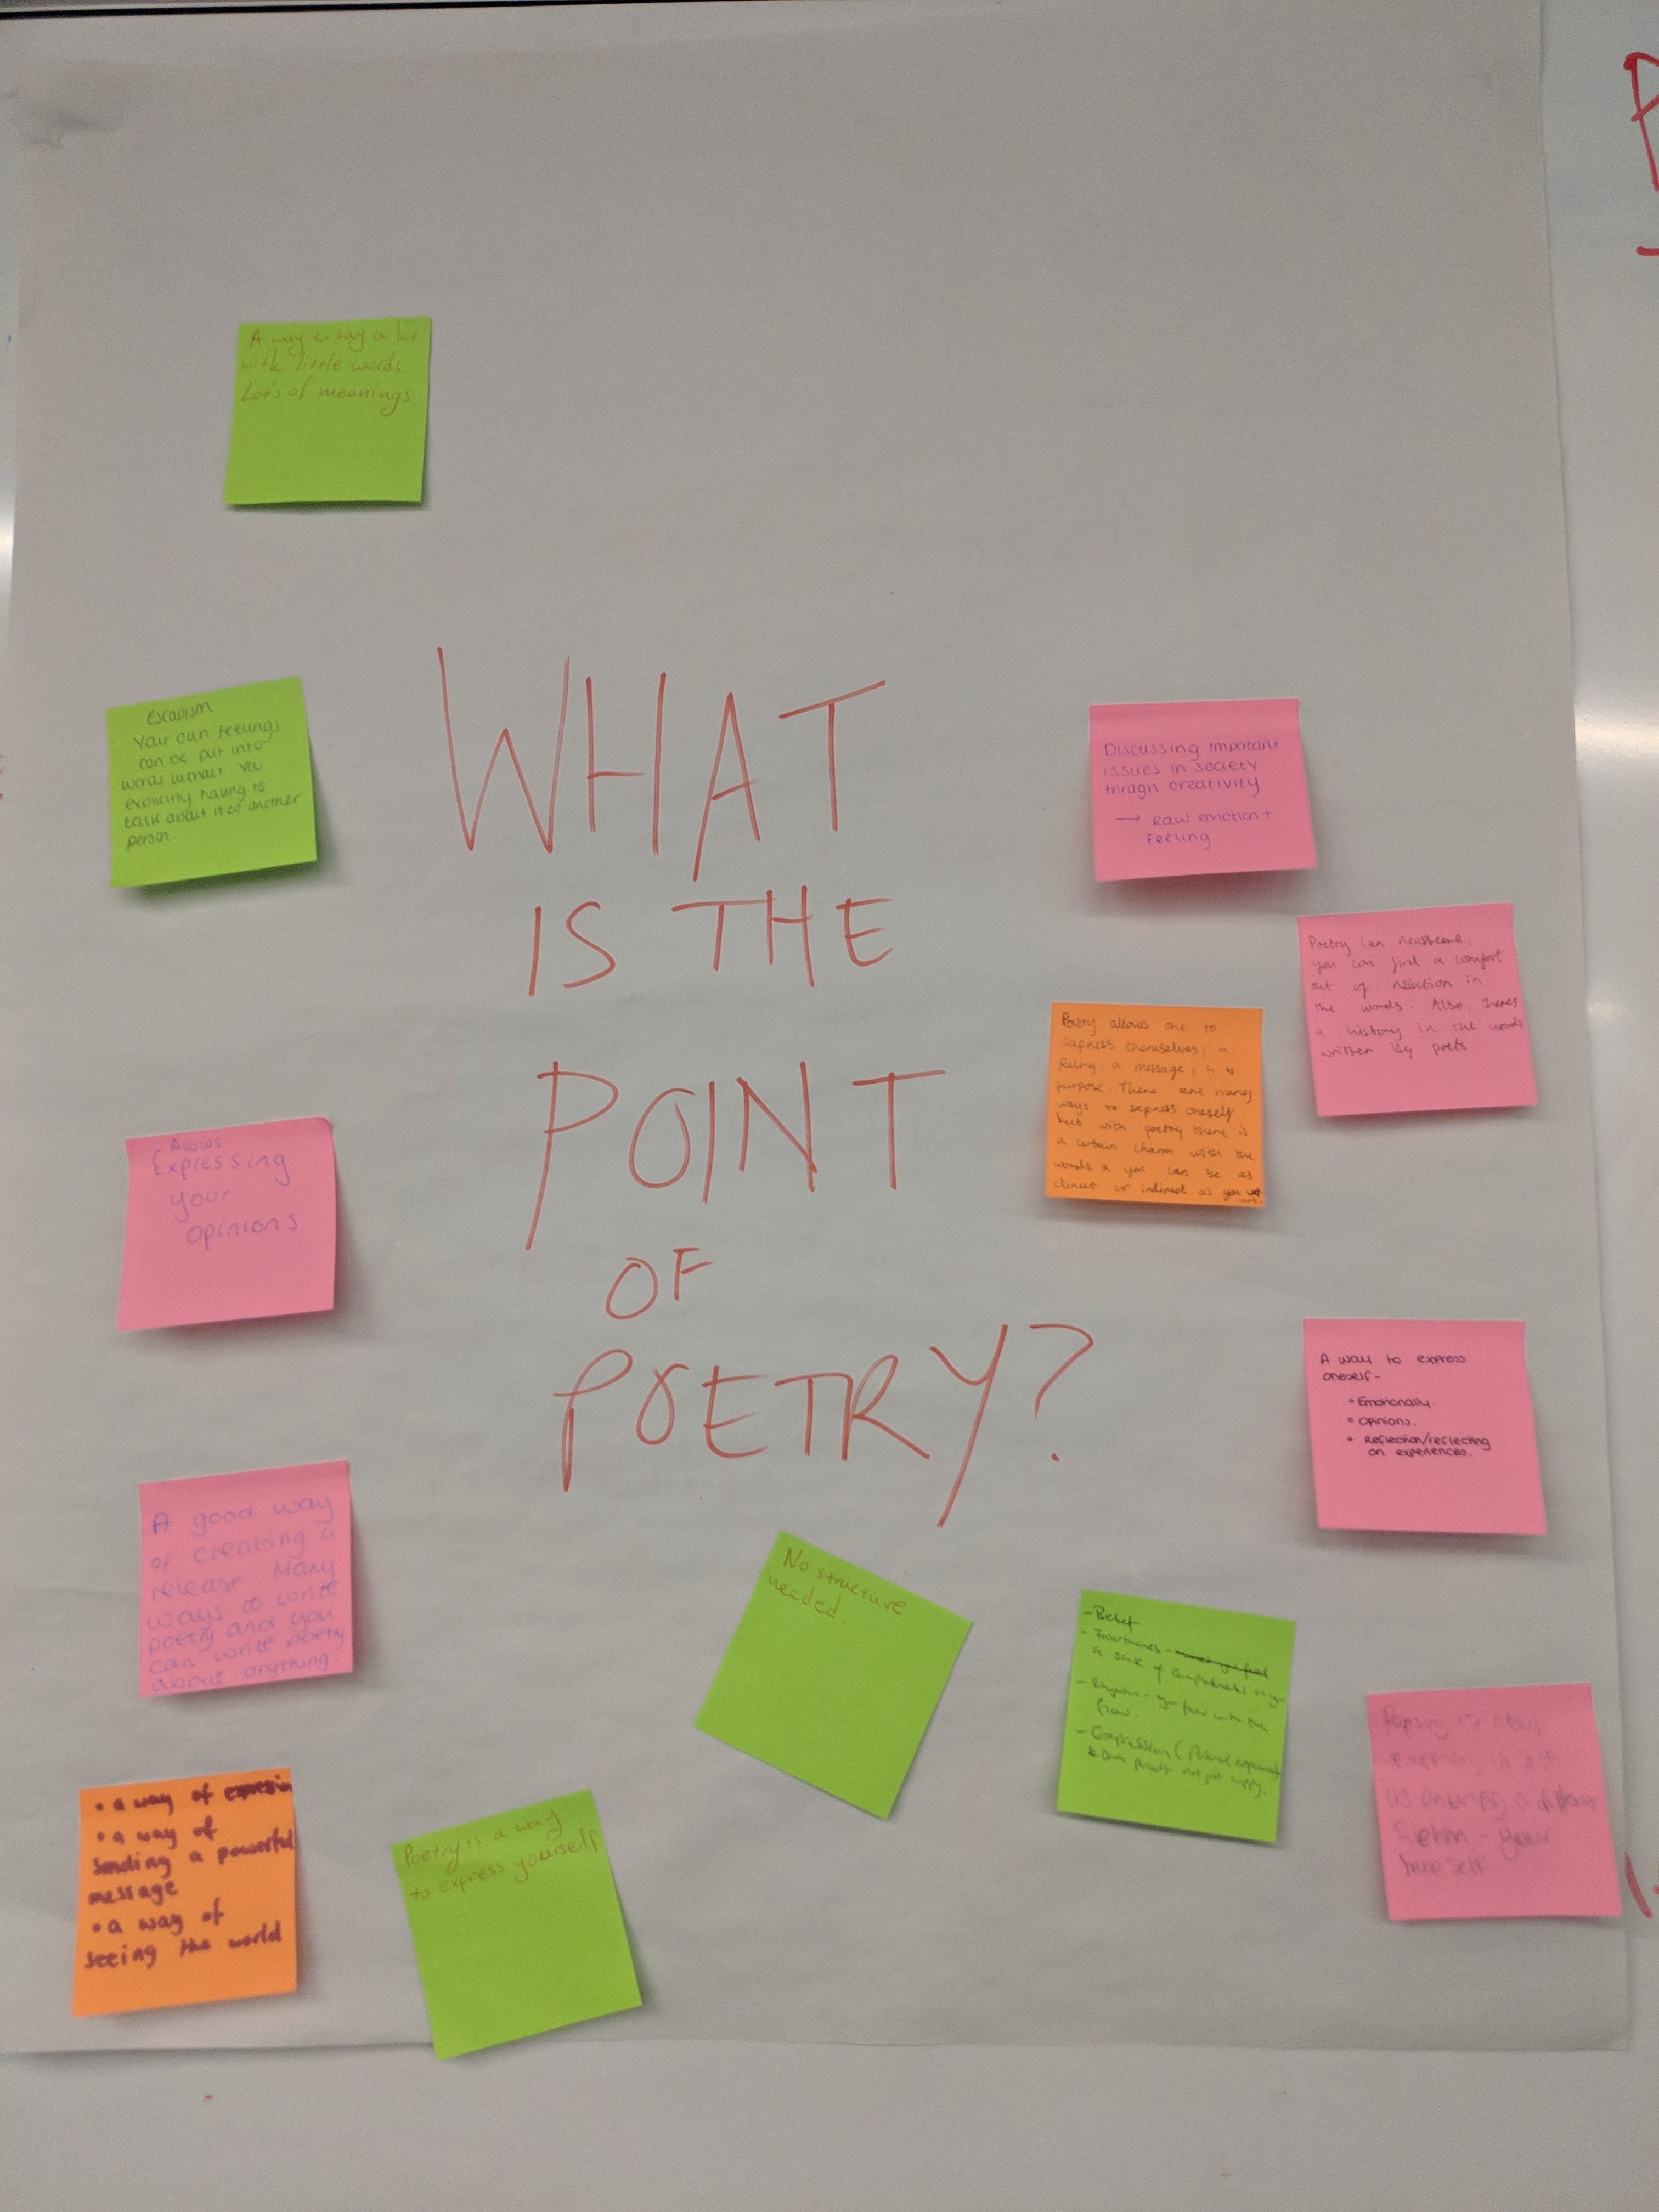 A way to say a lot
with little words.
Lot's of meanings.
Escapism
Your own feelings
can be put into
words without you
explicitly having to
talk about it to another
person.
WHAT
IS THE
POINT
OF
POETRY?
Discussing impotant
issues in society
through creativity
→ Raw emotion +
feeling
Poetry can reassure,
you can find a comfort
out of relection in
the words. Also, theres
a history in the words
written by poets.
Poetry allows one to
express themselves, a
feeling, a message, a
purpose. There are many
ways to express oneself
but with poetry there is
a certain charm with the
words & you can be as
direct or indirect as you
Allows
Expressing
your
opinions
A way to express
oneself-
• Emotionally.
• Opinions.
• Reflection/reflecting
on experiences.
A good way
of creating a
release. Many
ways to write
poetry and you
can write poetry
about anything
No structure
needed.
- Belief
- Intertwines -
a sense of in
- you flow with the
flow.
- Expression (Personal
not just happy.
Poetry is about
in a different
Rehm - your
true self
• a way of expressin
• a way of
sending a powerful
message
• a way of
seeing the world
Poetry is a way
to express yourself